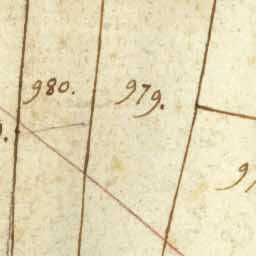 980.
979.